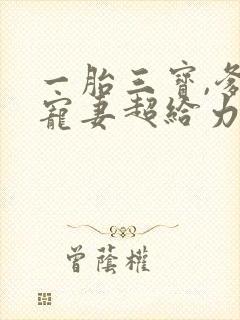 一胎三寶,爹
寵妻超給力
曾蔭權